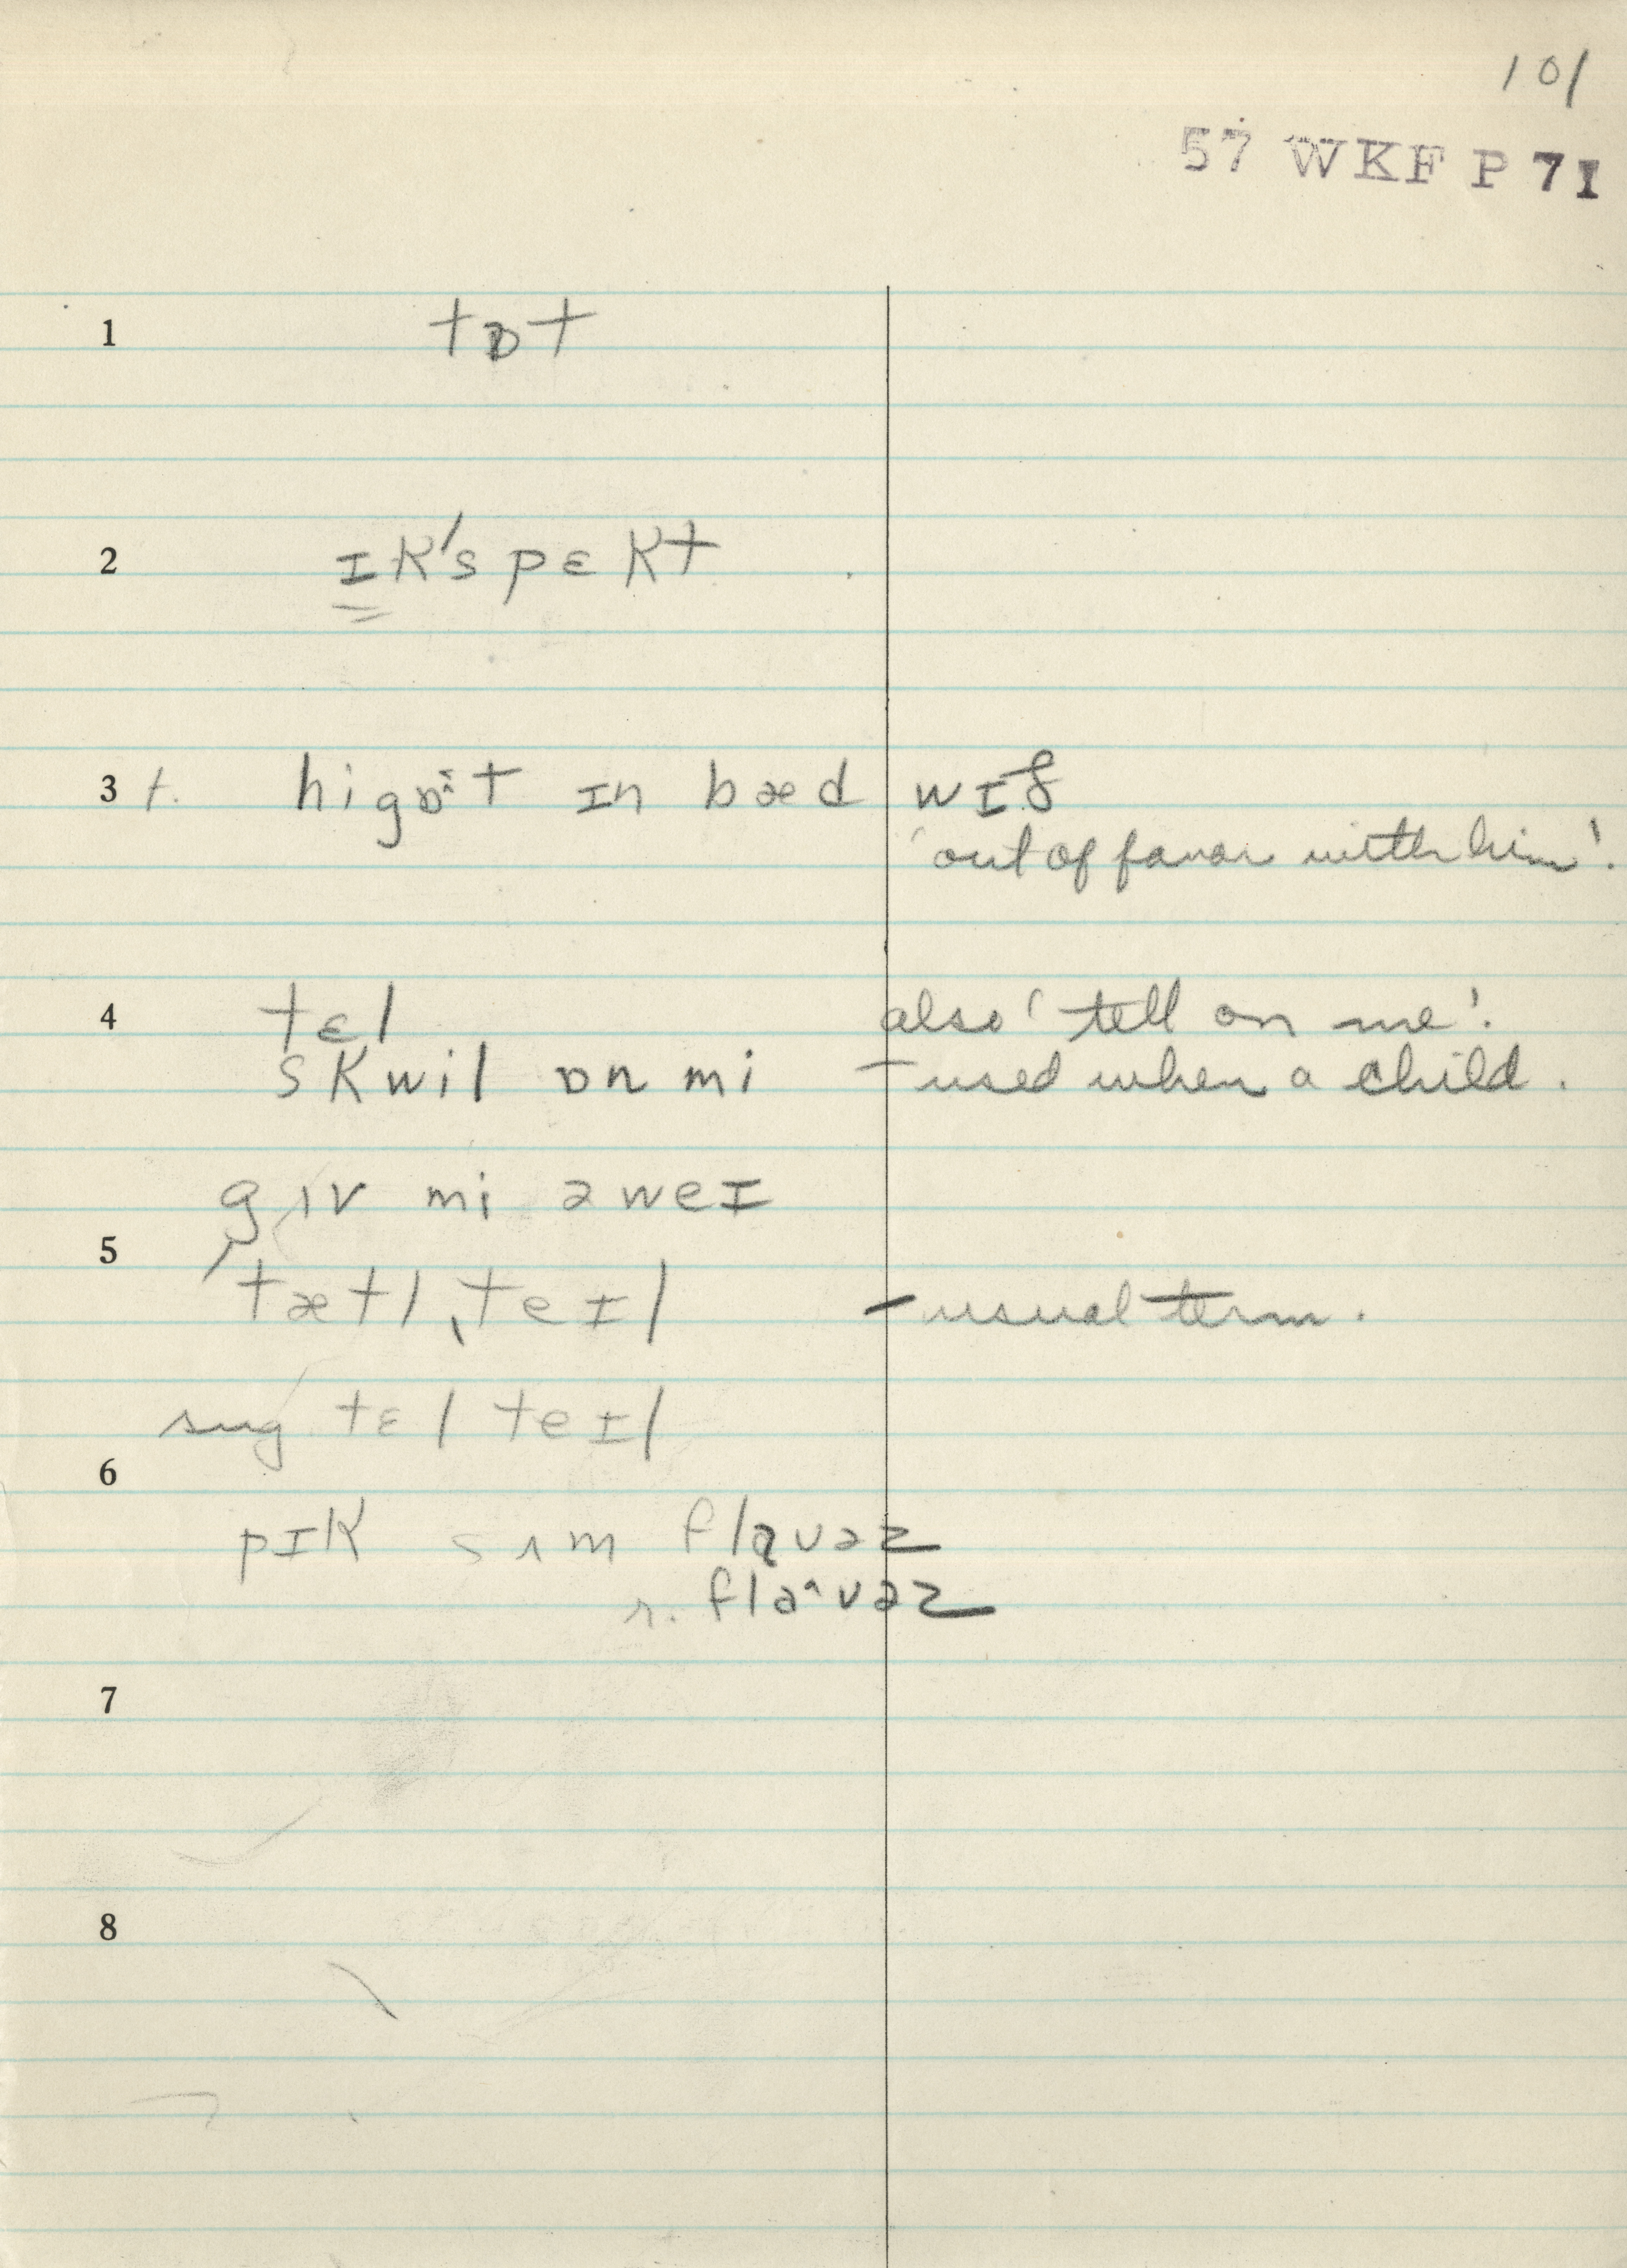 101
57 WKF P 71
1 tɒt
2 ɪk'spɛkt
3 t. higɒˆt ɪn bæd wɪð
'out of favor with him'.
4 tɛl also 'tell on me'.
skwil ɒn mi – used when a child.
gɪv mi əweɪ
5
'tætlˌteɪl – usual term.
sug. tɛl teɪl
6
pɪk sʌm flaʊəz
r. flaˆʊəz
7
8